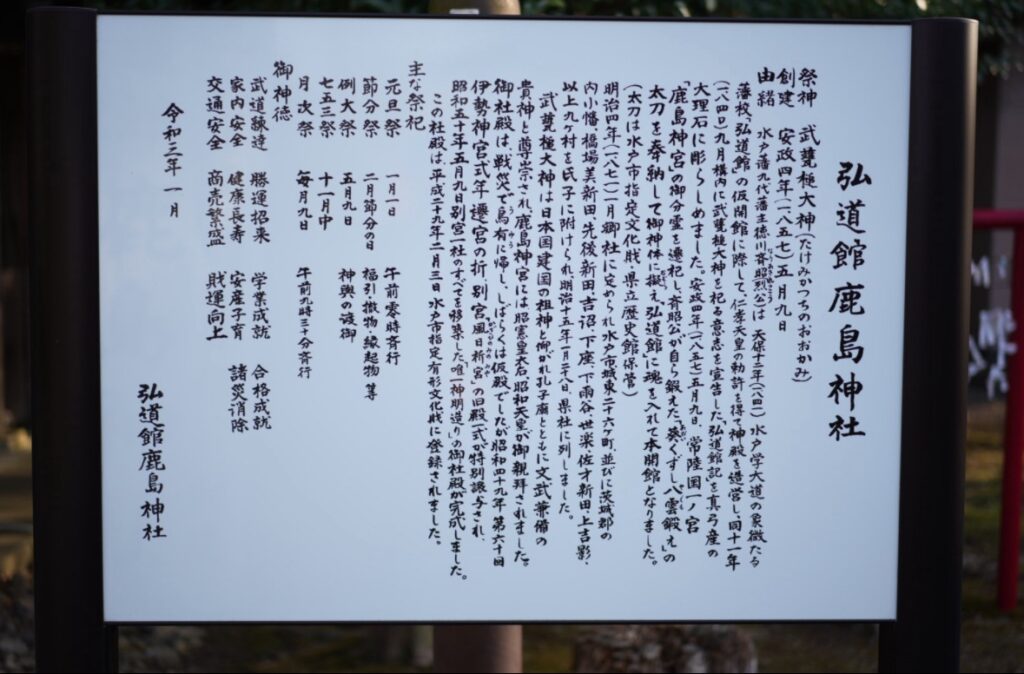 弘道館鹿島神社
祭神　武甕槌大神(たけみかつちのおおかみ)
創建　安政四年(一八五七)五月九日
由緒　水戸藩九代藩主徳川斉昭(烈)公は　天保十二年(一八四一)水戸学大道の象徴たる
藩校「弘道館」の仮開館に際して、仁孝天皇の勅許を得て神殿を造営し、同十一年
(一八四〇)九月構内に武甕槌大神を祀る意志を宣告した、「弘道館記」を真弓産の
大理石に彫らしめました。安政四年(一八五七)五月九日、常陸国一ノ宮
「鹿島神宮」の御分霊を遷祀し、斉昭公が自ら鍛えた、「葵くずし八雲鍛え」の
太刀を奉納して御神体に擬え、弘道館に魂を入れて本開館となりました。
(太刀は水戸市指定文化財、県立歴史館保管)
明治四年(一八七一)一月郷社に定められ水戸市城東二十六ケ町、並びに茨城郡の
内小幡、橋場美新田、先後新田、吉沼、下座、下雨谷、世楽、佐才新田、上吉影、
以上九ヶ村を氏子に附けられ明治十五年一月二十八日、県社に列しました。
武甕槌大神は日本国建国の祖神と仰がれ孔子廟とともに文武兼備の
貴神と尊崇され、鹿島神宮には昭憲皇太后、昭和天皇が御親拝されました。
御社殿は、戦災で烏有に帰し、しばらくは仮殿でしたが昭和四十九年、第六十回
伊勢神宮式年遷宮の折、別宮「風日祈宮」の旧殿一式が特別譲与され、
昭和五十年五月九日別宮一社のすべてを移築した「唯一神明造り」の御社殿が完成しました。
この社殿は、平成二十九年二月三日、水戸市指定有形文化財に登録されました。
主な祭祀
元旦祭　一月一日　午前零時斉行
節分祭　二月節分の日　福引・撒物・縁起物等
例大祭　五月九日　神輿の渡御
七五三祭　十一月中
月次祭　毎月九日　午前九時三十分斉行
御神徳
武道錬達　勝運招来　学業成就　合格成就
家内安全　健康長寿　安産子育　諸災消除
交通安全　商売繁盛　財運向上
令和三年一月
弘道館鹿島神社